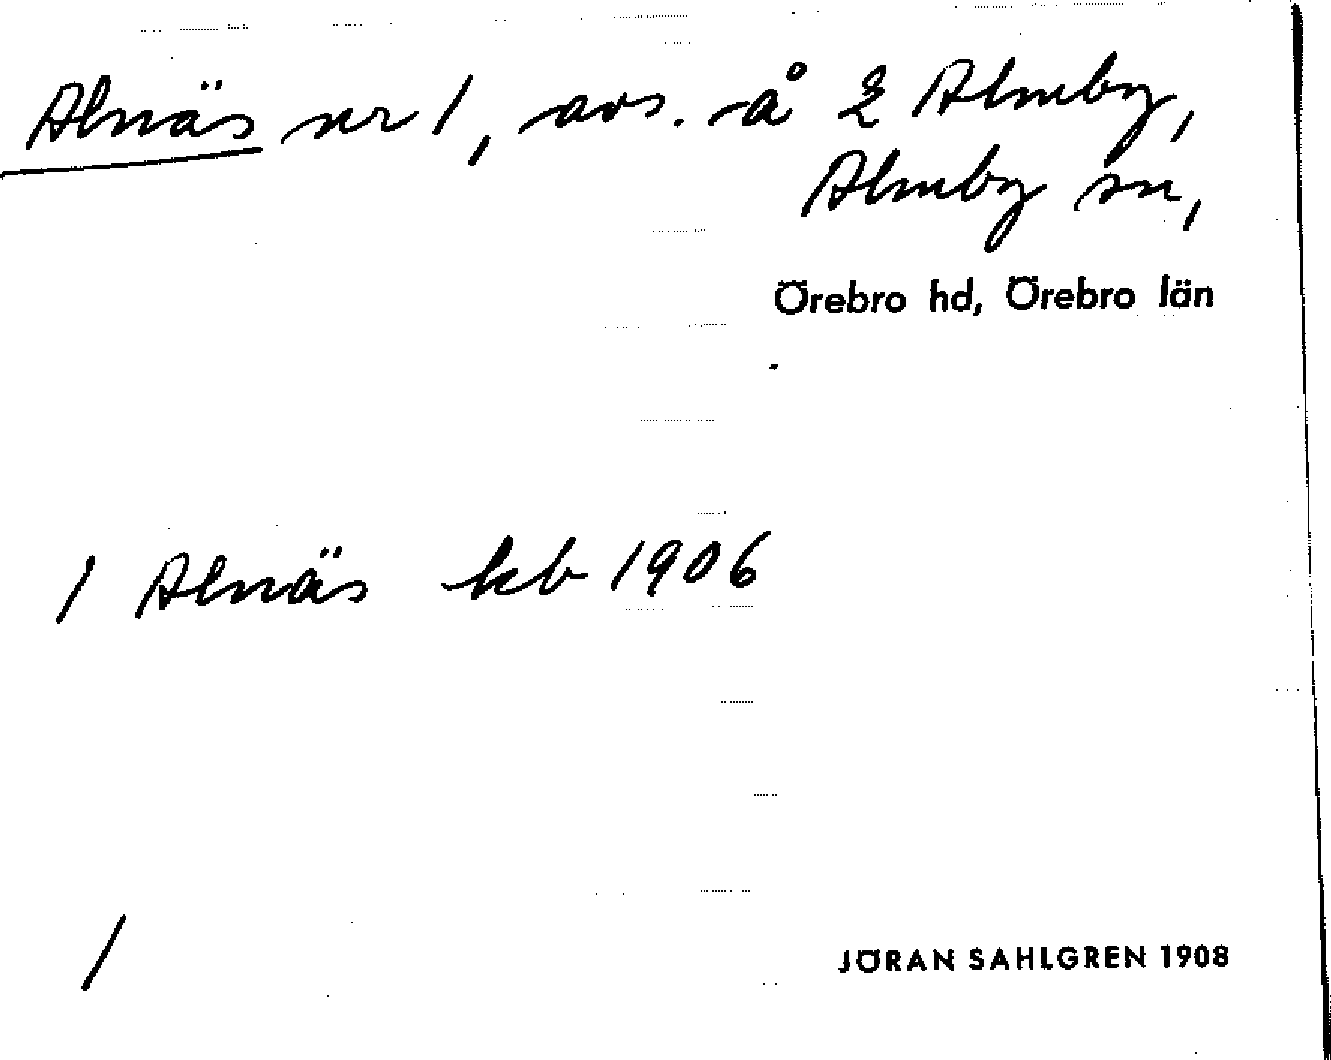 Alnäs nr 1, avs. å 2 Almby,
Almby sn,
Örebro hd, Örebro län
1 Alnäs kb 1906
/
JÖRAN SAHLGREN 1908